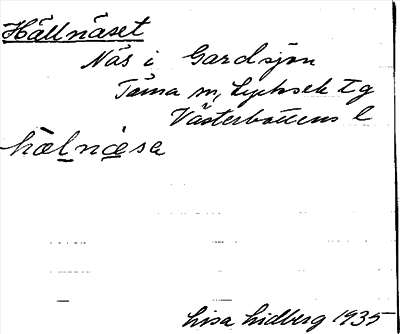 Hällnäset
Näs i Gardsjön
Tärna sn, Lycksele Lg
Västerbottens l
hælnæsa
Lisa Lidberg 1935